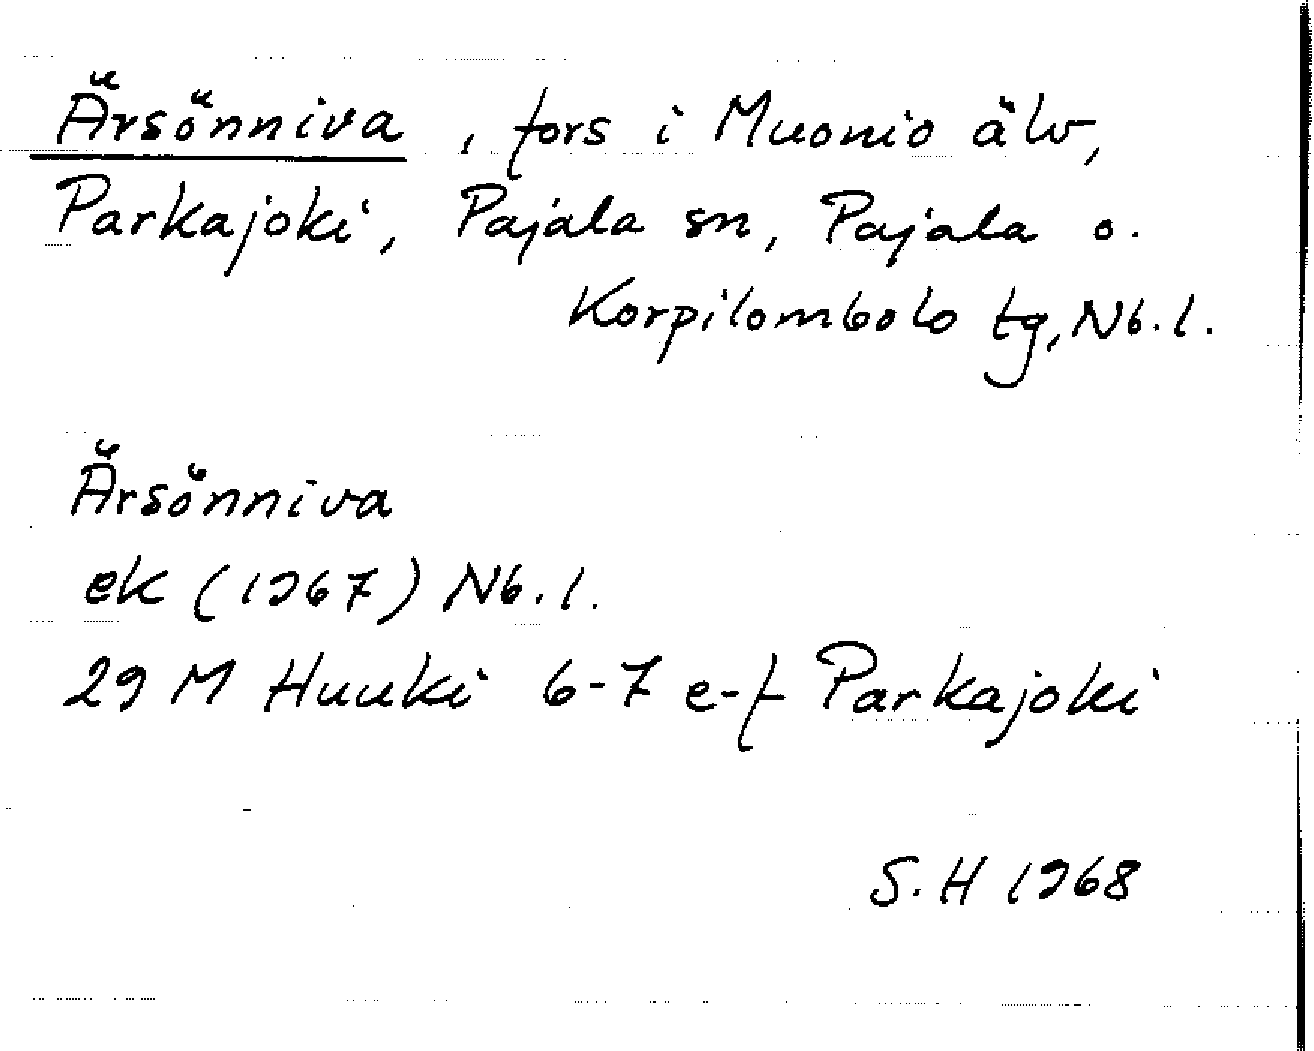 Ärsönniva, fors i Muonio älv,
Parkajoki, Pajala sn, Pajala o.
Korpilombolo tg, Nb. l.
Ärsönniva
ek (1967) Nb. l.
29 M Huuki 6-7 e-f Parkajoki
S. H 1968